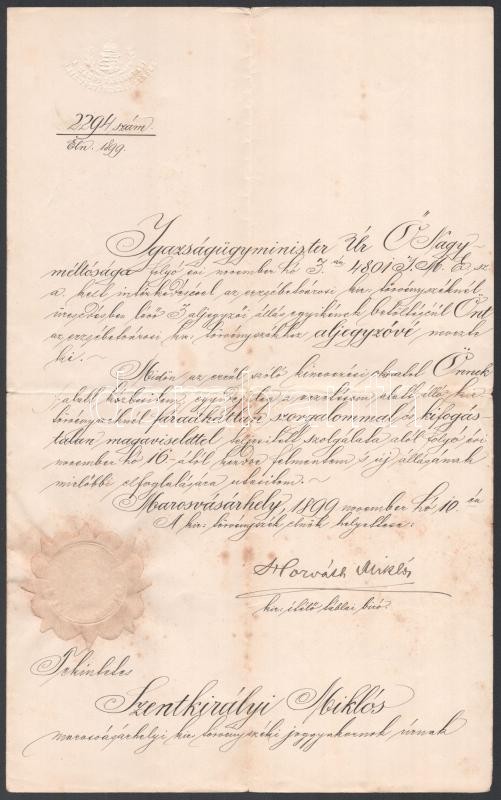 2294 szám.
Eln. 1899.
Igazságügyminister Úr Ő Nagy-
méltósága folyó évi november hó 3. án 4801 I. M. E. sz.
a. kelt intézkedésével az erzsébetvárosi kir. törvényszéknél
üresedésben levő 3 aljegyzői állás egyikének betöltéséül Önt
az erzsébetvárosi kir. törvényszékhez aljegyzővé nevezte
ki.
Midőn az erről szóló kinevezési okiratot Önnek
alatt kézbesítem, egyúttal a vezetésem alatt álló kir.
törvényszéknél fáradhatlan szorgalommal és kifogás
talan magaviselettel teljesített szolgálata alól folyó évi
november hó 16-ától kezdve felmentem s új állásának
mielőbbi elfoglalására utasítom.
Marosvásárhely, 1899 november hó 10 én
A kir. törvényszék elnök helyettese:
Horváth Miklós
kir. ítélő táblai bíró.
Tekintetes
Szentkirályi Miklós
marosvásárhelyi kir. törvényszéki joggyakornok úrnak